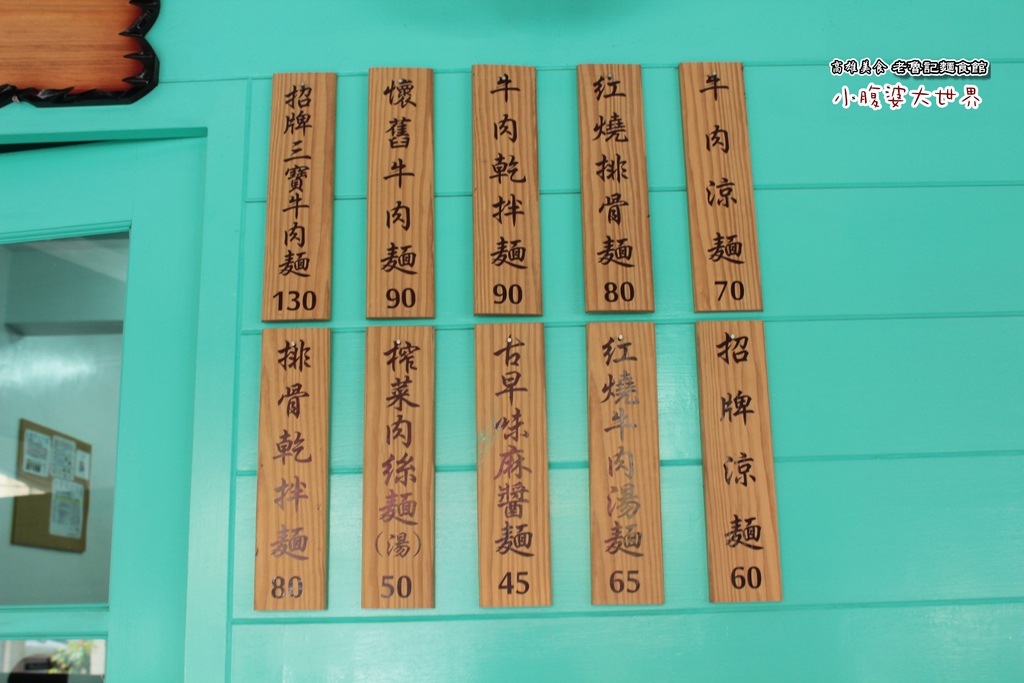 高雄美食 老魯記麵食館
小腹婆大世界
招牌三寶牛肉麵
130
懷舊牛肉麵
90
牛肉乾拌麵
90
紅燒排骨麵
80
牛肉涼麵
70
排骨乾拌麵
80
榨菜肉絲麵
(湯)
50
古早味麻醬麵
45
紅燒牛肉湯麵
65
招牌涼麵
60